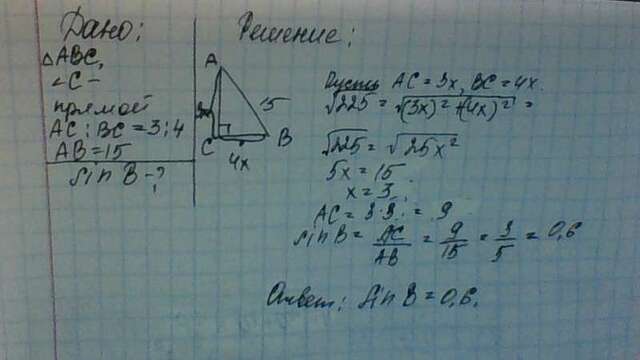 Дано:
△ABC,
∠C –
прямой
AC : BC = 3 : 4
AB = 15
sin B – ?
Решение:
A
3x
15
C
B
4x
Пусть AC = 3x, BC = 4x.
√225 = √(3x)² + (4x)² =
√225 = √25x²
5x = 15
x = 3
AC = 3·3 = 9
sin B = AC/AB = 9/15 = 3/5 = 0,6
Ответ: sin B = 0,6.